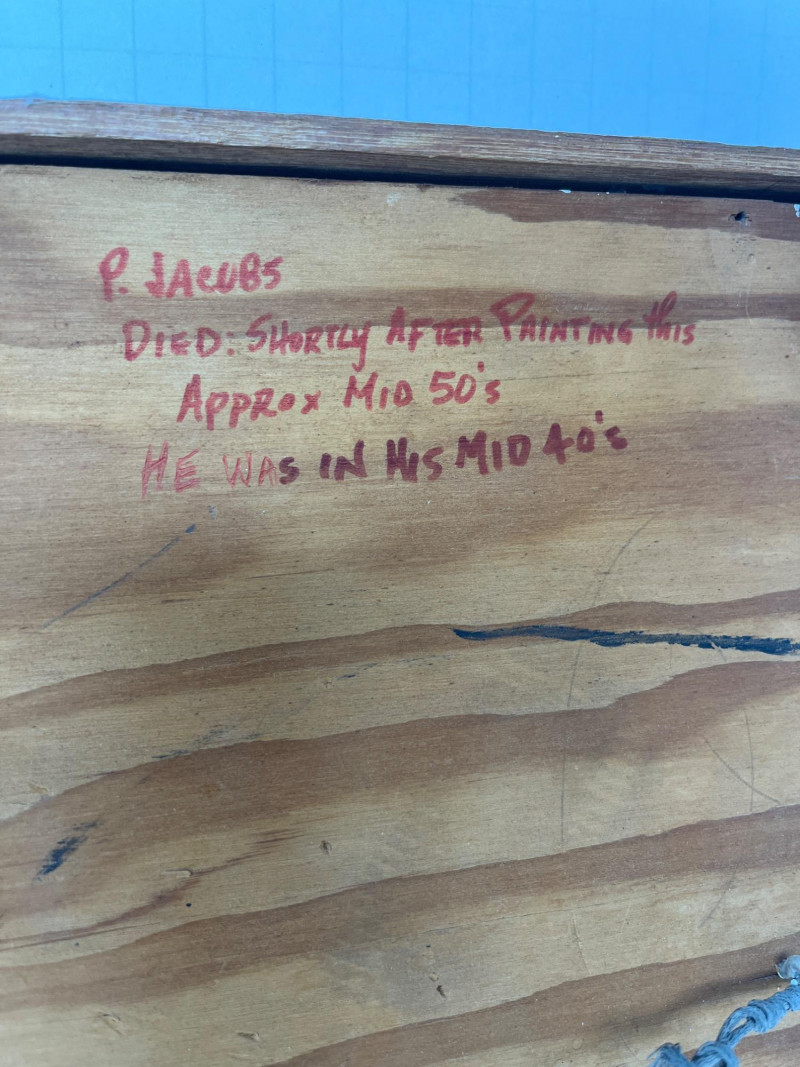 P. JACOBS
DIED: SHORTLY AFTER PAINTING THIS
APPROX MID 50's
HE WAS IN HIS MID 40's